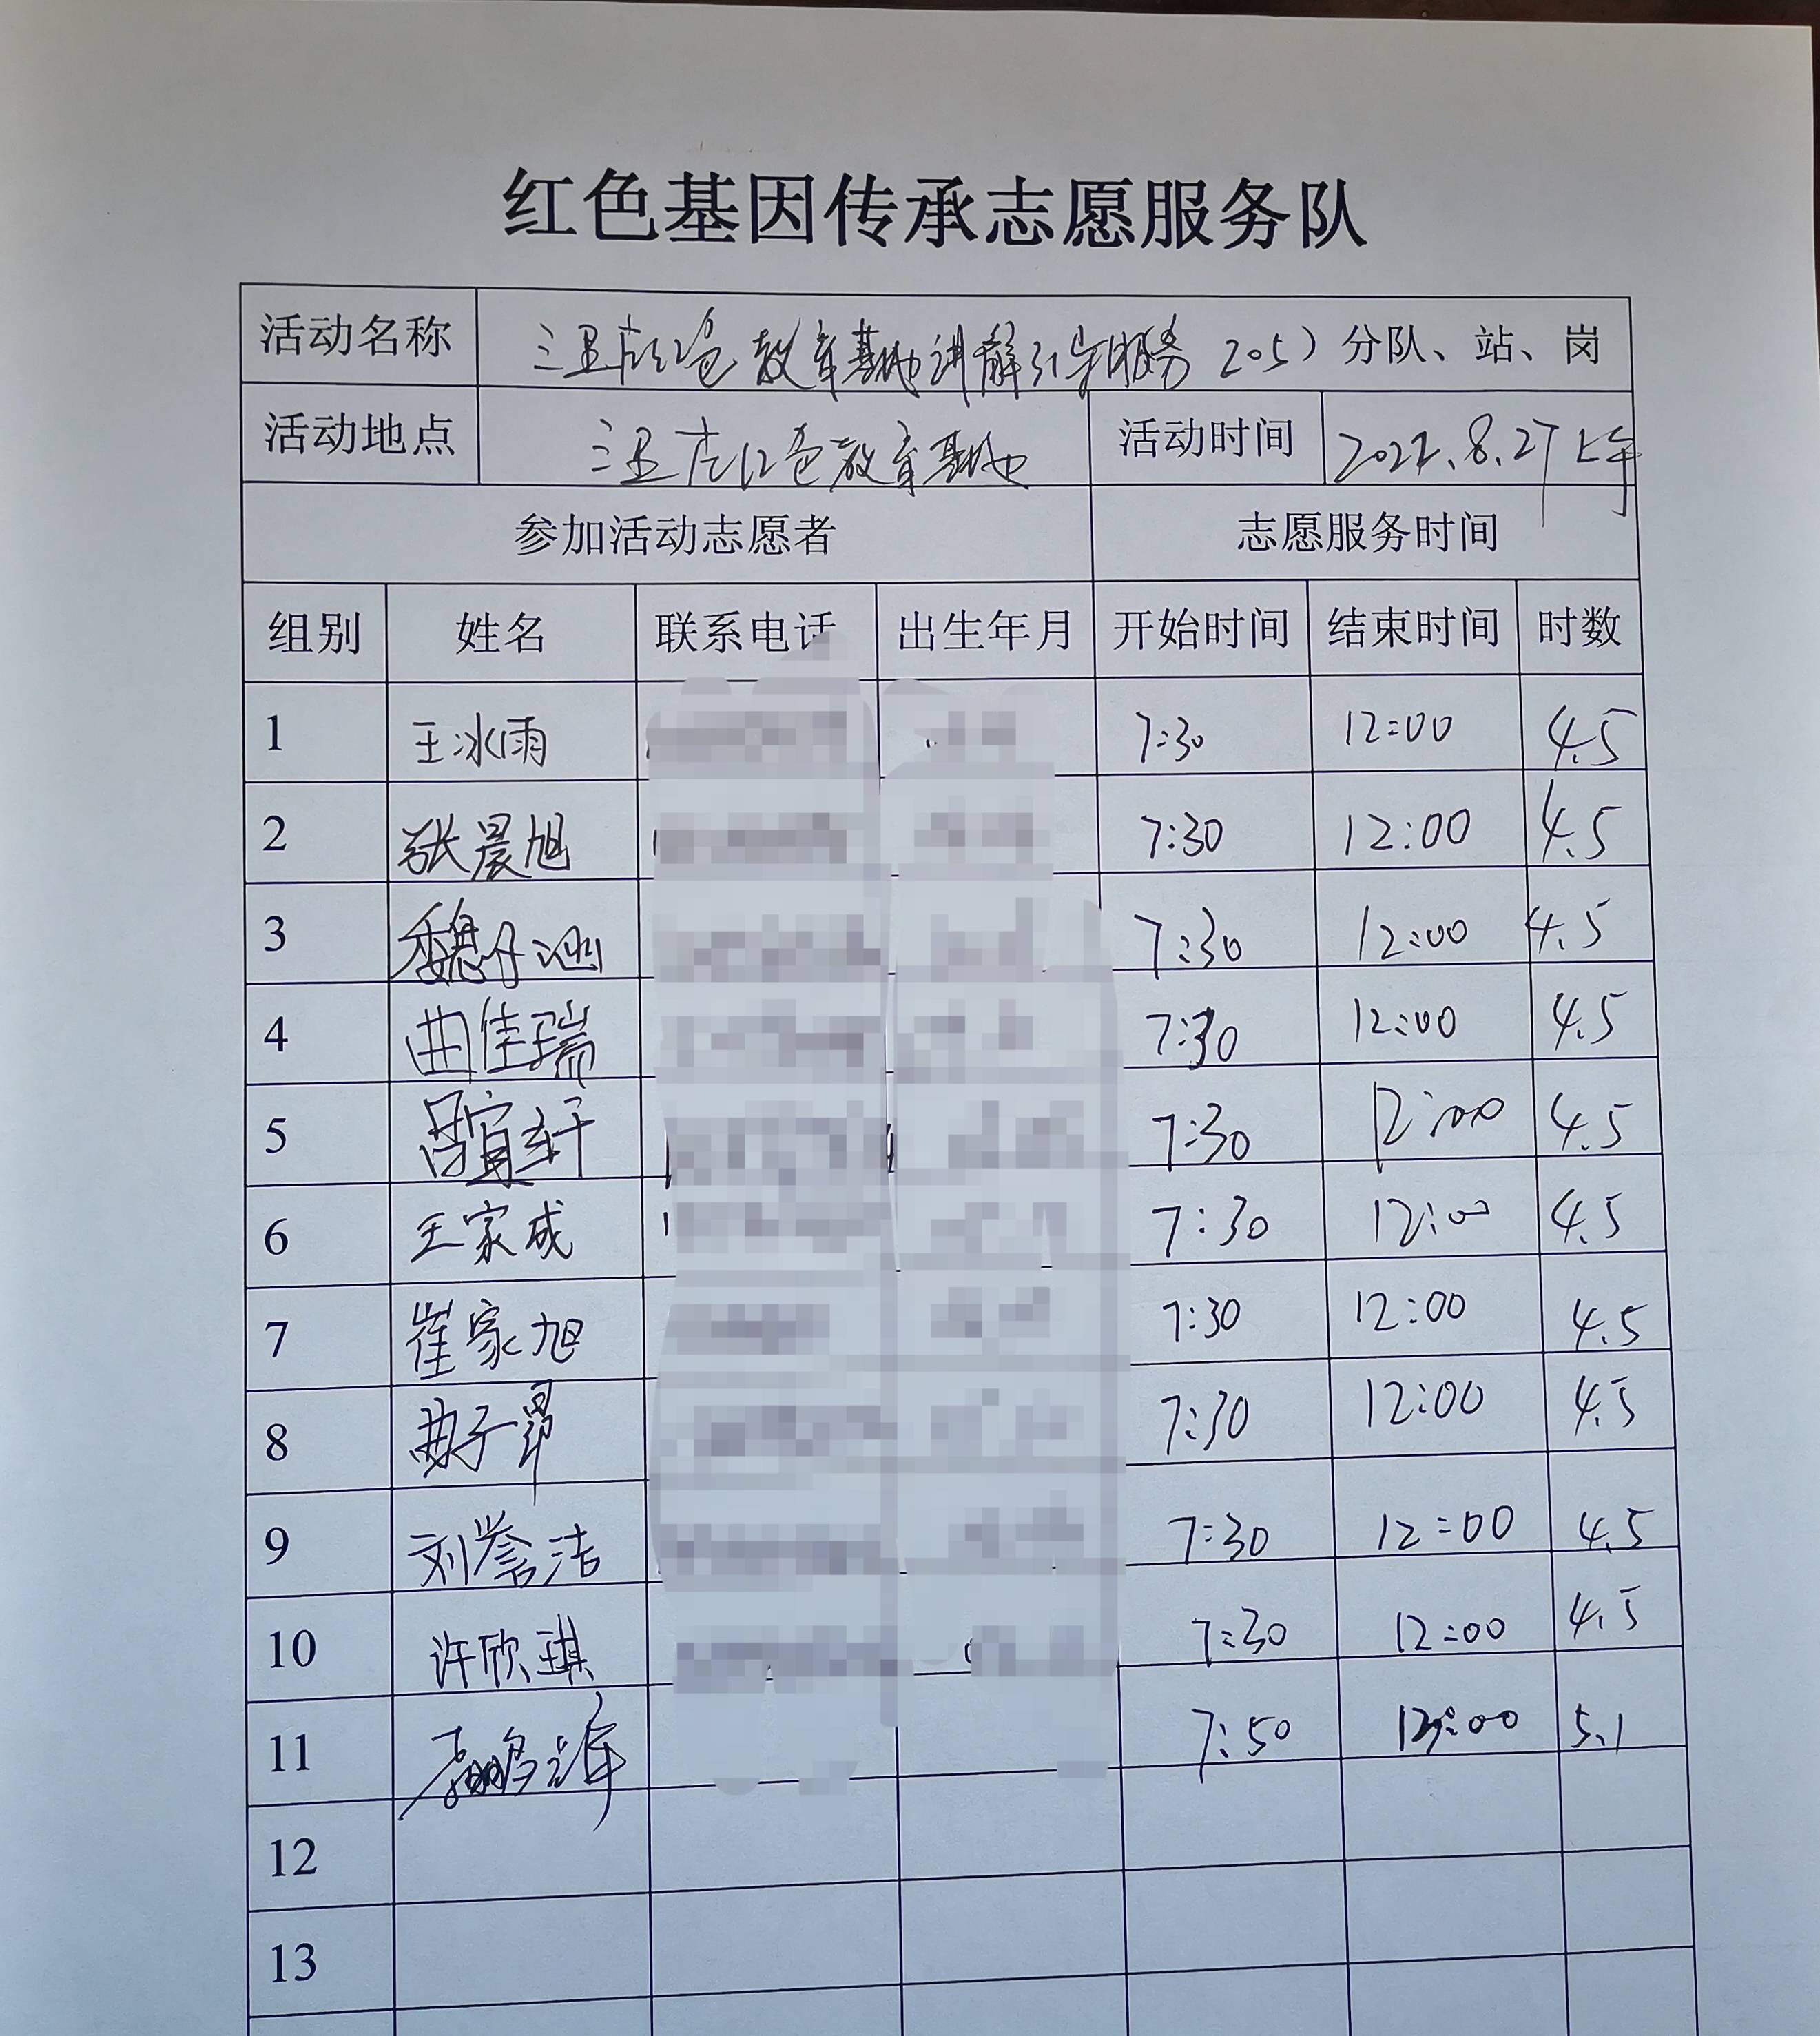 红色基因传承志愿服务队
活动名称 三里庄红色教育基地讲解引导服务 205）分队、站、岗
活动地点 三里庄红色教育基地 活动时间 2022.8.27上午
参加活动志愿者 志愿服务时间
组别 姓名 联系电话 出生年月 开始时间 结束时间 时数
1 王冰雨 7:30 12:00 4.5
2 张晨旭 7:30 12:00 4.5
3 魏仔涵 7:30 12:00 4.5
4 曲佳瑞 7:30 12:00 4.5
5 吕宜轩 7:30 12:00 4.5
6 王家成 7:30 12:00 4.5
7 崔家旭 7:30 12:00 4.5
8 曲子昂 7:30 12:00 4.5
9 刘誉洁 7:30 12:00 4.5
10 许欣琪 7:30 12:00 4.5
11 7:50 12:00 5.1
12
13